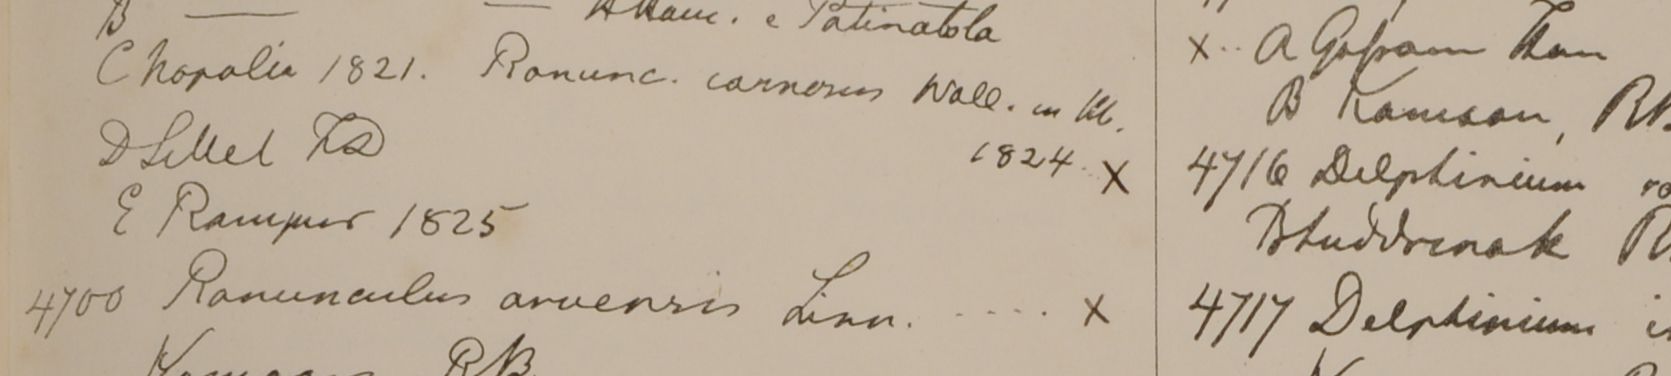 B — — H Ham. e Patinatola
C hopalia 1821. Ranunc. carnosus Wall. in lit.
1824 x
D Sillet FD
E Rampur 1825
4700 Ranunculus arvensis Linn. ..... x
Kumaon RB
x .. A Gossam Than
B Kamaon, RB
4716 Delphinium
Bhuddrenak
4717 Delphinium